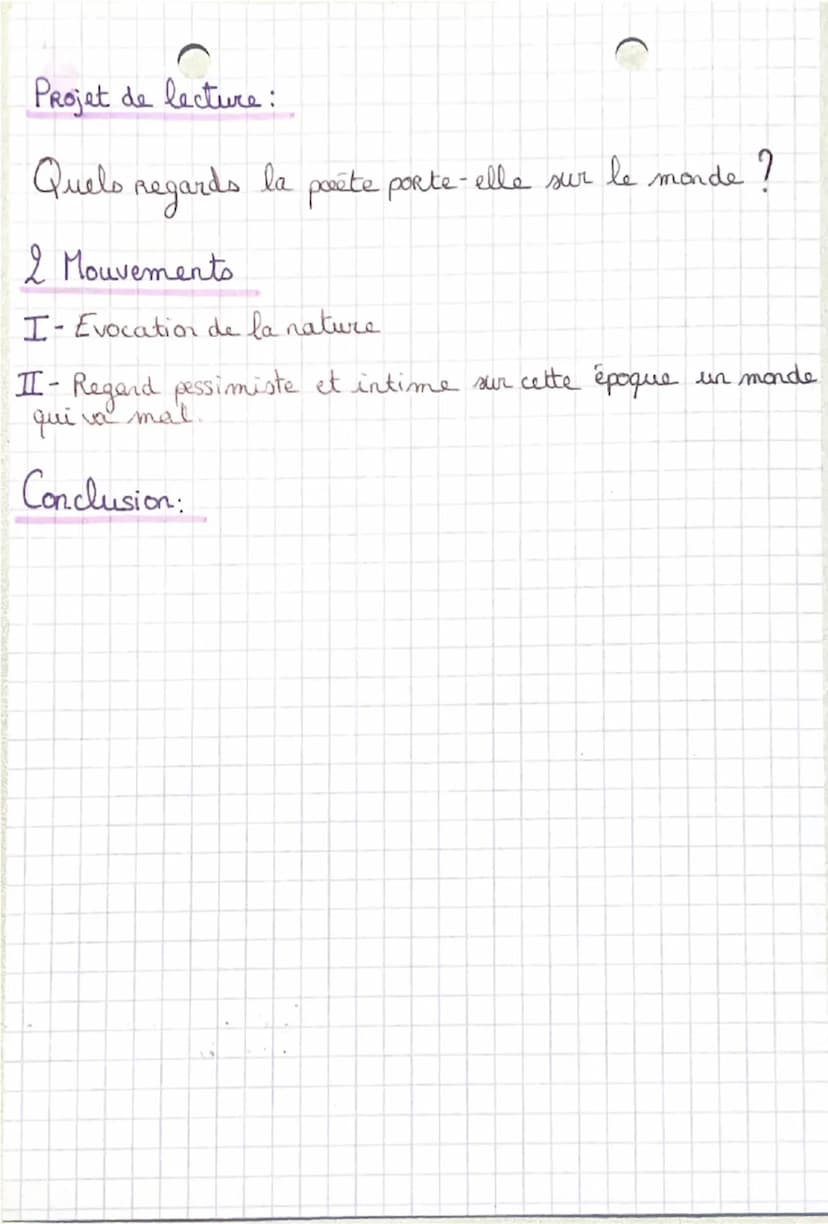 Projet de lecture :
Quels regards la poète porte-elle sur le monde ?
2 Mouvements
I - Evocation de la nature
II - Regard pessimiste et intime sur cette époque un monde
qui va mal.
Conclusion :